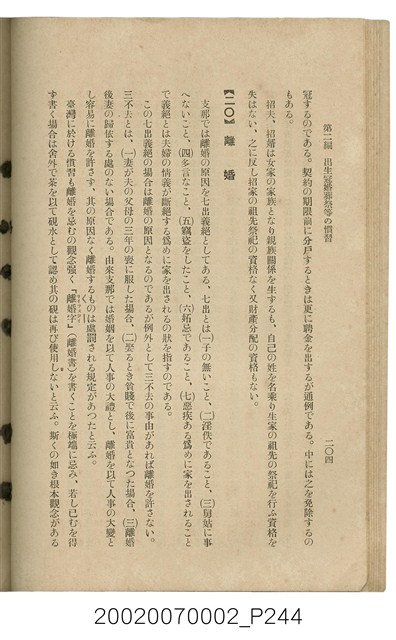 第二編　出生冠婚葬祭等の慣習
二〇四
冠するのである。契約の期限前に分戸するときは更に聘金を出するが通例である。中には之を免除するの
もある。
招夫、招壻は女家の家族となり親族關係を生するも、自己の姓を名乘り生家の祖先の祭祀を行ふ資格を
失はない、之に反し招家の祖先祭祀の資格なく又財產分配の資格もない。
【二〇】離　婚
支那では離婚の原因を七出義絕としてある。七出とは（一）子の無いこと、（二）淫佚であること、（三）舅姑に事
へないこと、（四）多言なこと、（五）竊盜をしたこと、（六）妬忌であること、（七）惡疾ある爲めに家を出されること
で義絕とは夫婦の情義が斷絕する爲めに家を出されるの狀を指すのである。
この七出義絕の場合は離婚の原因となるのであるが例外として三不去の事由があれば離婚を許さない。
三不去とは、（一）妻が夫の父母の三年の喪に服した場合、（二）娶るとき貧賤で後に富貴となつた場合、（三）離婚
後妻の歸依する處のない場合である。由來支那では婚姻を以て人事の大禮とし、離婚を以て人事の大變と
し容易に離婚を許さす、其の原因なく離婚するものは處罰される規定があつたと云ふ。
臺灣に於ける慣習も離婚を忌むの觀念强く「離婚字」（離婚書）を書くことを極端に忌み、若し已むを得
ず書く場合は舍外で茶を以て硯水として認め其の硯は再び使用しないと云ふ。斯くの如き根本觀念がある
20020070002_P244